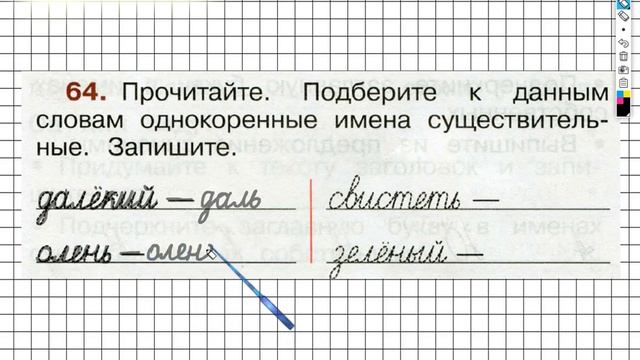 64. Прочитайте. Подберите к данным
словам однокоренные имена существитель-
ные. Запишите.
далёкий — даль
свистеть —
олень — олен
зелёный —